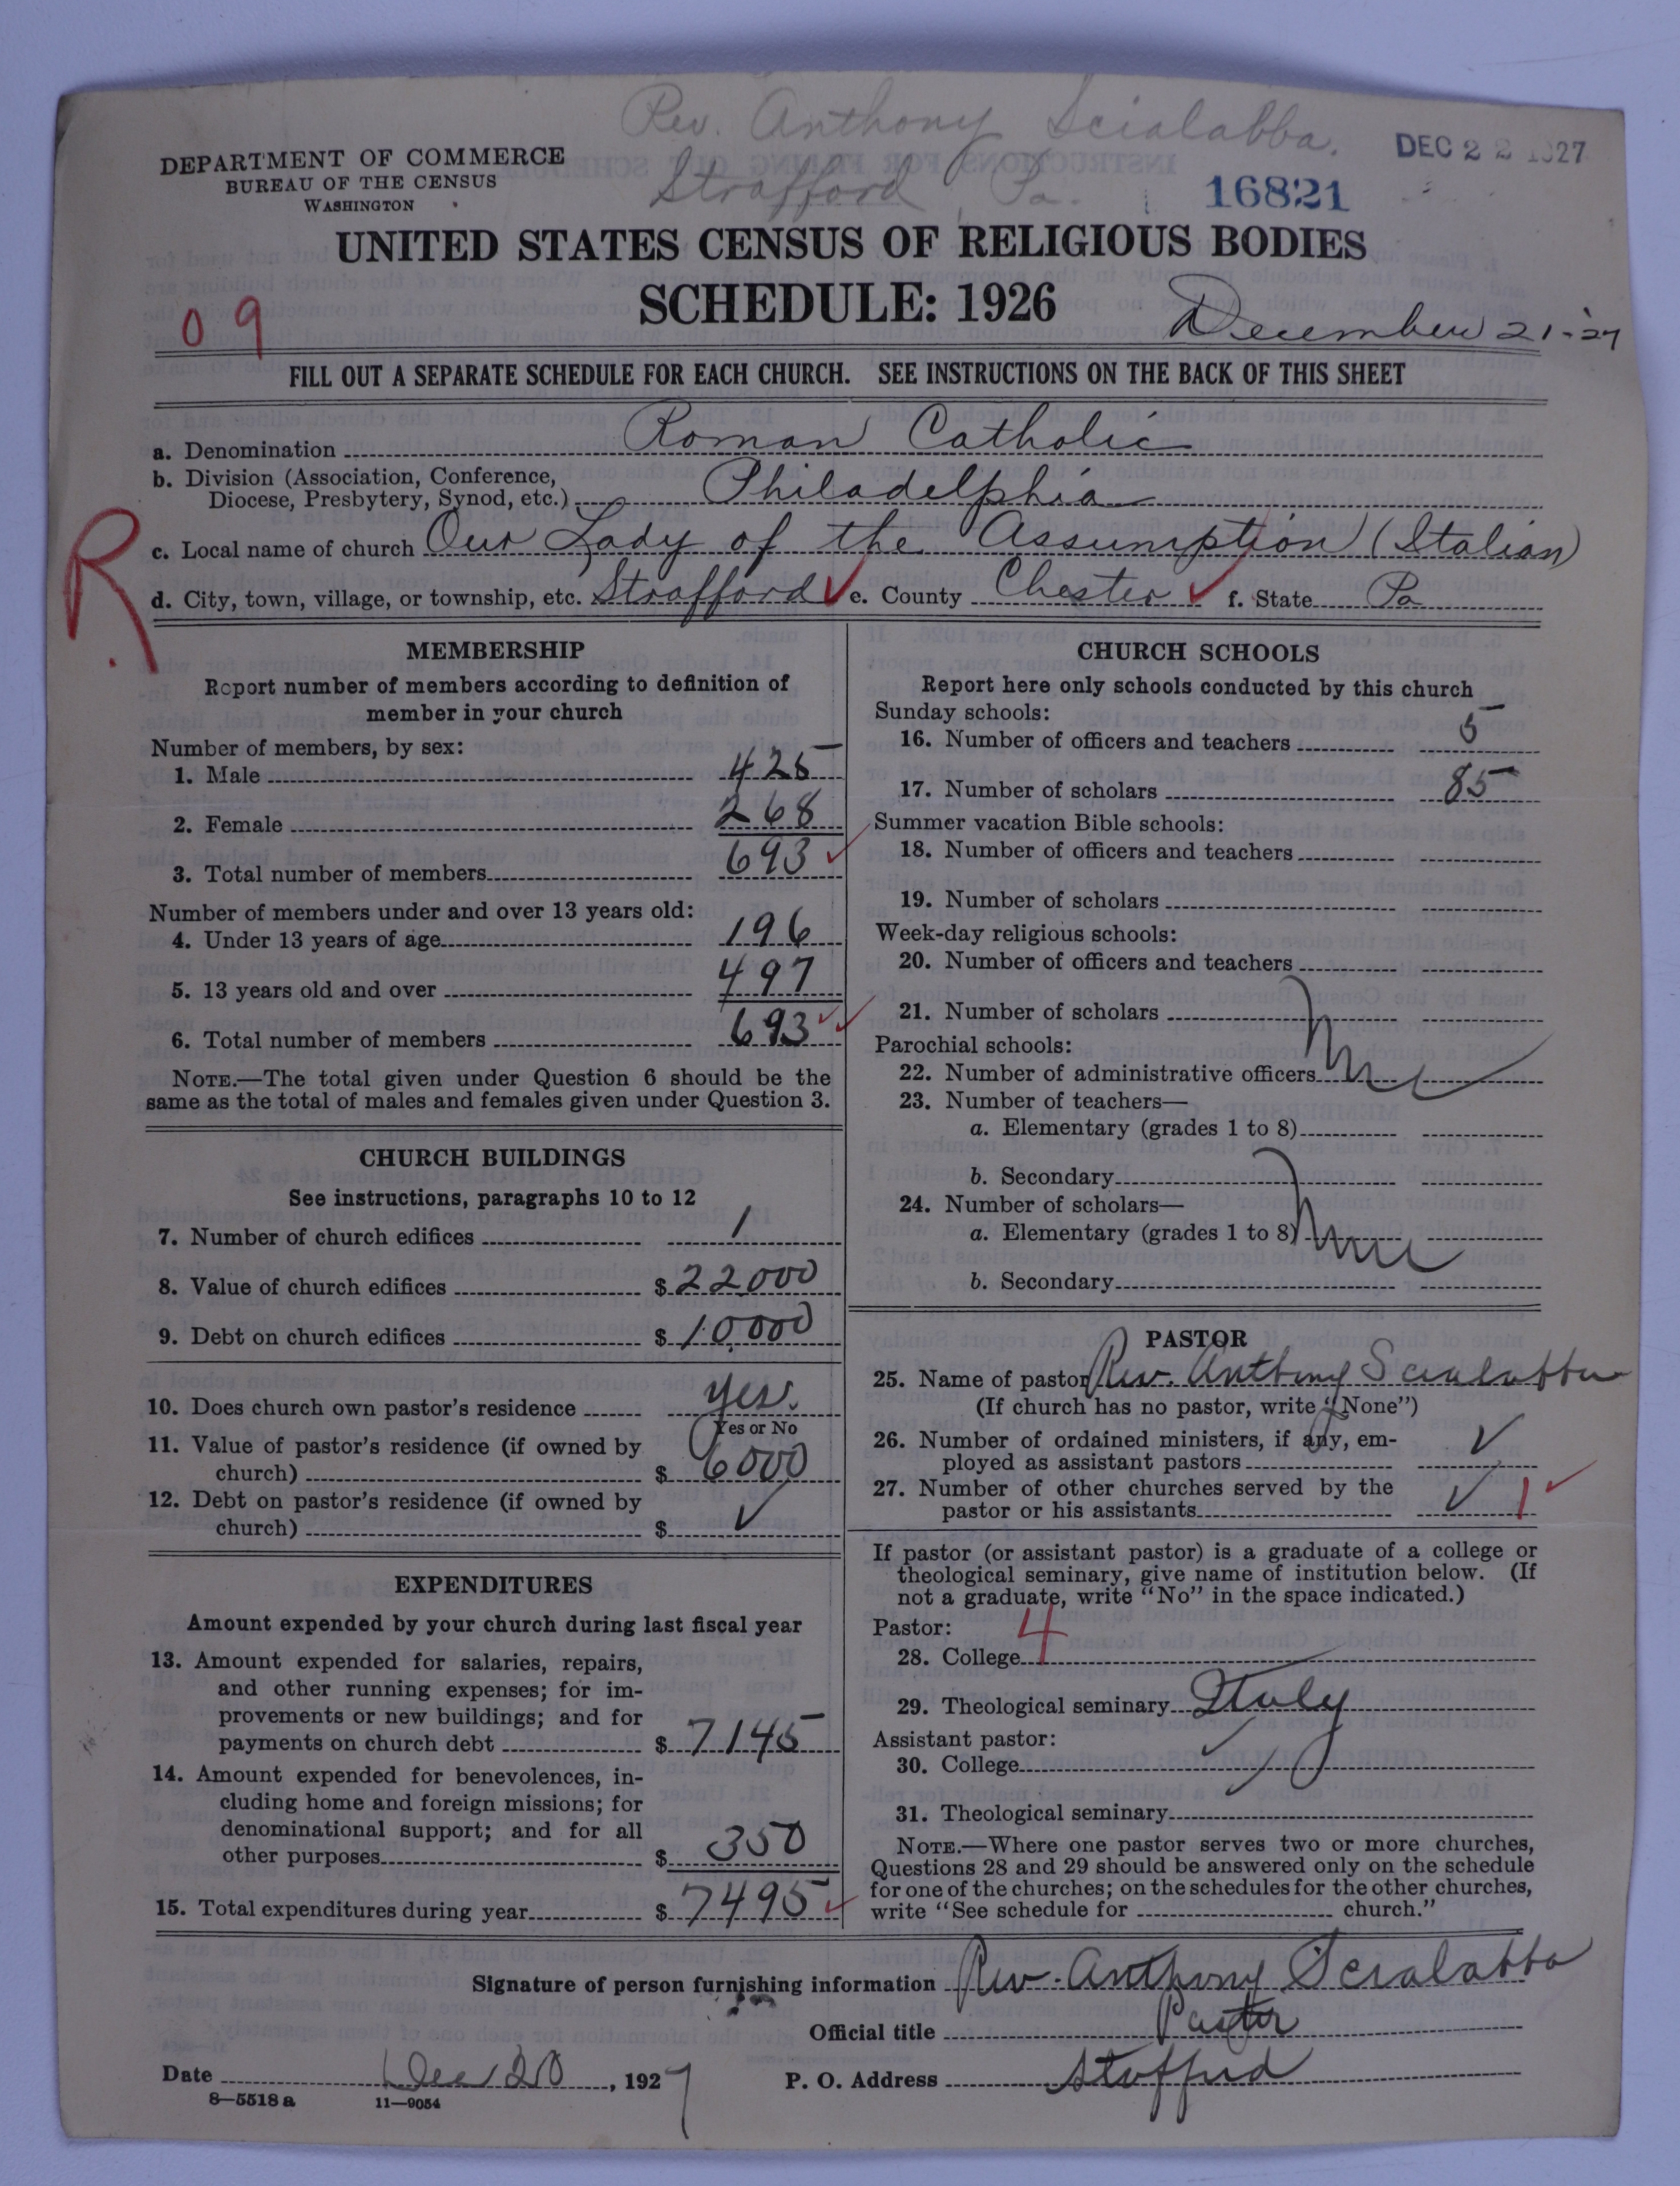 Rev. Anthony Scialabba.
Strafford, Pa.
DEC 22 1927
16821
DEPARTMENT OF COMMERCE
BUREAU OF THE CENSUS
WASHINGTON
UNITED STATES CENSUS OF RELIGIOUS BODIES
SCHEDULE: 1926
09
December 21-'27
FILL OUT A SEPARATE SCHEDULE FOR EACH CHURCH. SEE INSTRUCTIONS ON THE BACK OF THIS SHEET
a. Denomination Roman Catholic
b. Division (Association, Conference,
Diocese, Presbytery, Synod, etc.) Philadelphia
R.
c. Local name of church Our Lady of the Assumption (Italian)
d. City, town, village, or township, etc. Strafford ✓ e. County Chester ✓ f. State Pa
MEMBERSHIP
Report number of members according to definition of
member in your church
Number of members, by sex:
1. Male 425
2. Female 268
3. Total number of members 693 ✓
Number of members under and over 13 years old:
4. Under 13 years of age 196
5. 13 years old and over 497
6. Total number of members 693 ✓ ✓
NOTE.—The total given under Question 6 should be the
same as the total of males and females given under Question 3.
CHURCH BUILDINGS
See instructions, paragraphs 10 to 12
7. Number of church edifices 1
8. Value of church edifices $ 22000
9. Debt on church edifices $ 10,000
10. Does church own pastor's residence yes.
Yes or No
11. Value of pastor's residence (if owned by
church) $ 6000
12. Debt on pastor's residence (if owned by
church) $ ✓
EXPENDITURES
Amount expended by your church during last fiscal year
13. Amount expended for salaries, repairs,
and other running expenses; for im-
provements or new buildings; and for
payments on church debt $ 7145
14. Amount expended for benevolences, in-
cluding home and foreign missions; for
denominational support; and for all
other purposes $ 350
15. Total expenditures during year $ 7495 ✓
CHURCH SCHOOLS
Report here only schools conducted by this church
Sunday schools:
16. Number of officers and teachers 5
17. Number of scholars 85
Summer vacation Bible schools:
18. Number of officers and teachers
19. Number of scholars
Week-day religious schools:
20. Number of officers and teachers
21. Number of scholars
Parochial schools:
22. Number of administrative officers
23. Number of teachers—
a. Elementary (grades 1 to 8)
b. Secondary
24. Number of scholars—
a. Elementary (grades 1 to 8)
b. Secondary
PASTOR
25. Name of pastor Rev. Anthony Scialabba
(If church has no pastor, write "None")
26. Number of ordained ministers, if any, em-
ployed as assistant pastors ✓
27. Number of other churches served by the
pastor or his assistants ✓ 1 ✓
If pastor (or assistant pastor) is a graduate of a college or
theological seminary, give name of institution below. (If
not a graduate, write "No" in the space indicated.)
Pastor: 4
28. College
29. Theological seminary Italy
Assistant pastor: ✓
30. College ✓
31. Theological seminary
NOTE.—Where one pastor serves two or more churches,
Questions 28 and 29 should be answered only on the schedule
for one of the churches; on the schedules for the other churches,
write "See schedule for church."
Signature of person furnishing information Rev. Anthony Scialabba
Official title Pastor
Date Dec 20, 1927 P. O. Address Stafford
8—5518a 11—9054